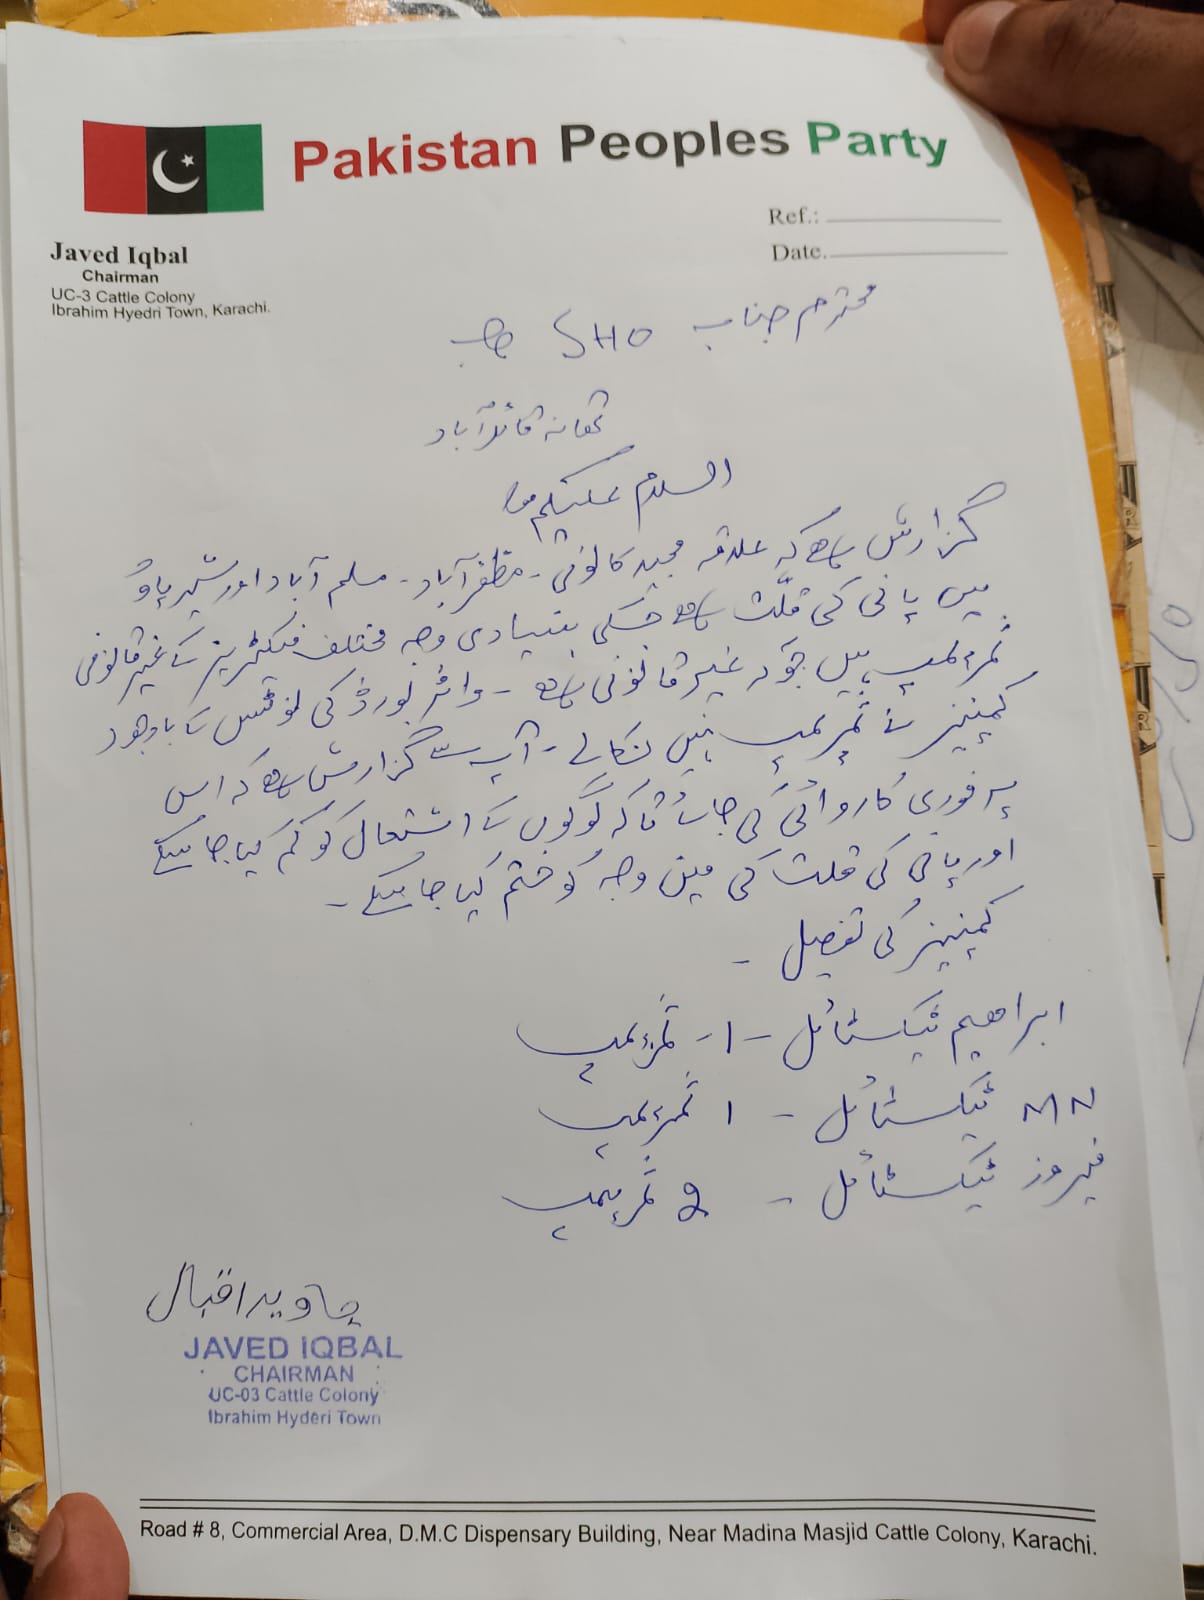 Pakistan Peoples Party
Ref.:
Date.
Javed Iqbal
Chairman
UC-3 Cattle Colony
Ibrahim Hyedri Town, Karachi.
محترم جناب SHO صاحب
تھانہ قائدآباد
السلام علیکم
گزارش ہے کہ علاقہ مجید کالونی - مظفرآباد - مسلم آباد اور شیرپاؤ
میں پانی کی قلّت ہے جسکی بنیادی وجہ مختلف فیکٹریز کے غیرقانونی
پمپ ہیں جوکہ غیر قانونی ہے - واٹر بورڈ کی نوٹس کے باوجود
کمپنیز نے پمپ نہیں نکالے - آپ سے گزارش ہے کہ اس
پر فوری کاروائی کی جائے تاکہ لوگوں کے اشتعال کو کم کیا جاسکے
اور پانی کی قلت کی مین وجہ کو ختم کیا جاسکے -
کمپنیز کی تفصیل -
ابراھیم ٹیکسٹائل - 1 - پمپ
MN ٹیکسٹائل - 1 پمپ
فیروز ٹیکسٹائل - 2 پمپ
جاوید اقبال
JAVED IQBAL
CHAIRMAN
UC-03 Cattle Colony
Ibrahim Hyderi Town
Road # 8, Commercial Area, D.M.C Dispensary Building, Near Madina Masjid Cattle Colony, Karachi.